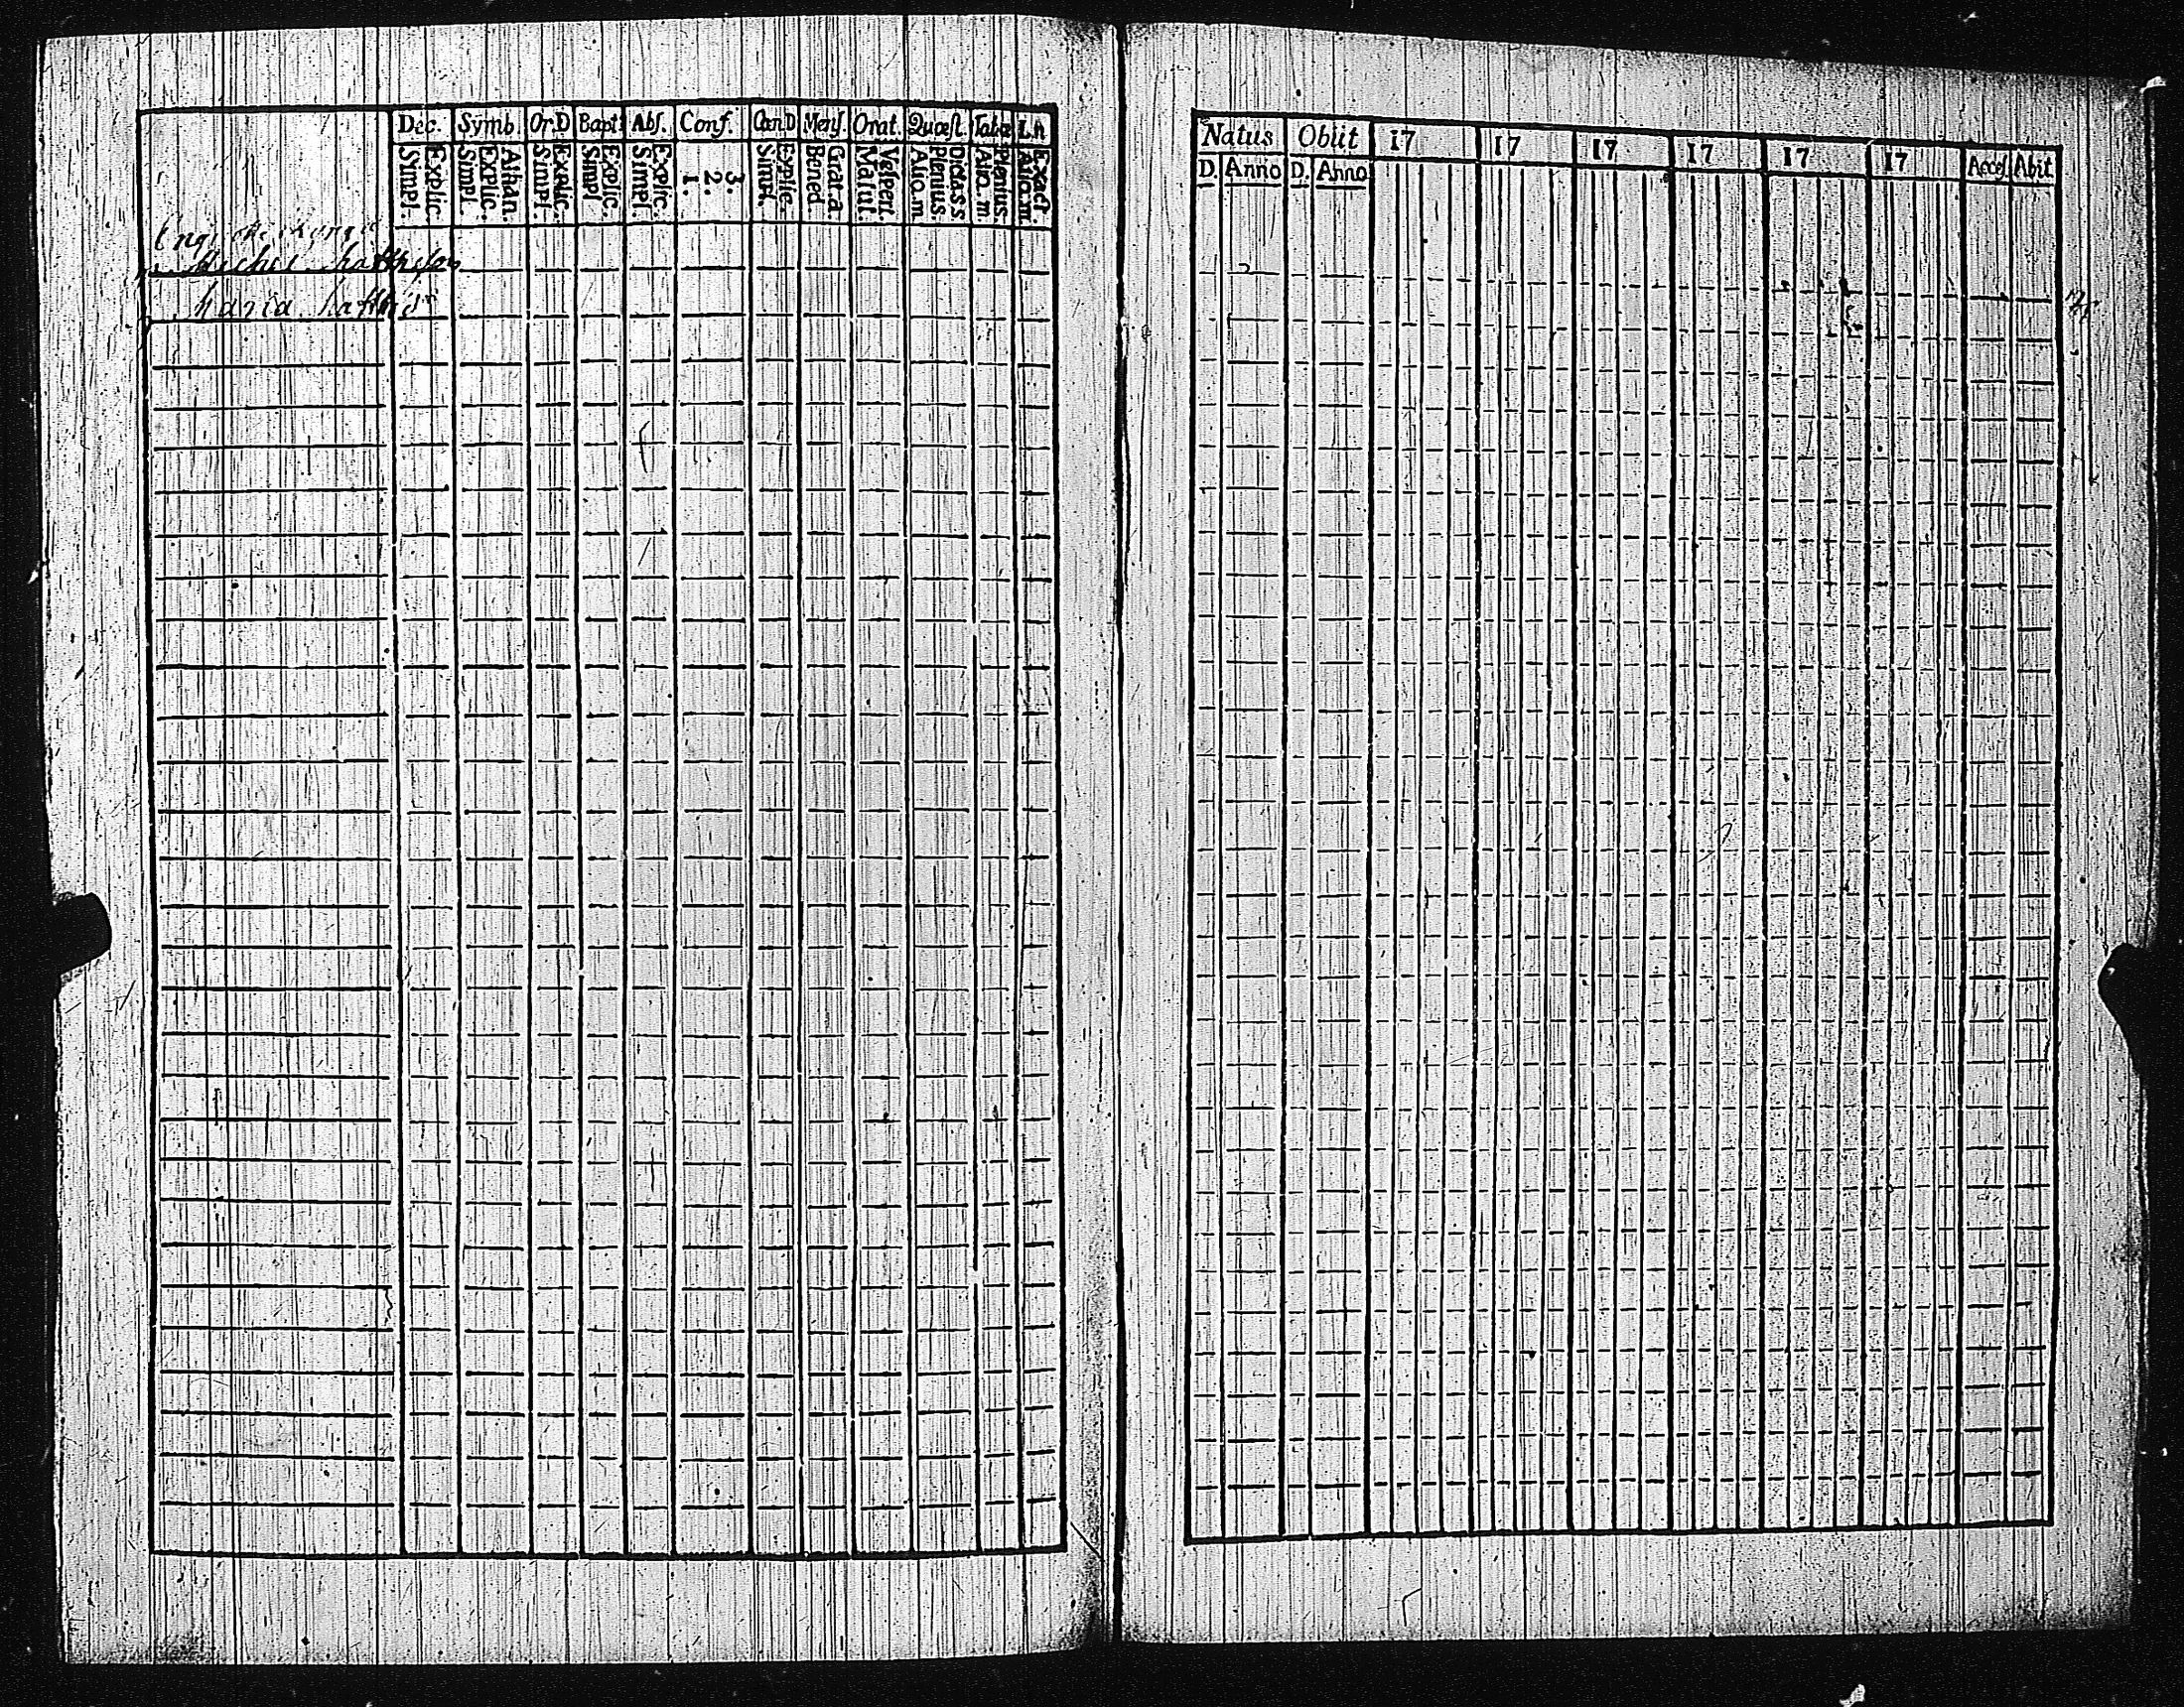 Dec. Symb. Or.D Bapt. Abs. Conf. Can.D Mens. Orat. Quæst. Tabæ L.n
Simpl. Explic. Simpl. Explic. Athan. Simpl. Explic. Simpl Explic. Simpl. Explic. 1. 2. 3. Simpl. Explic. Bened Grat.a. Matut. Vespert. Alio.m Plenius. Dict.a.s.s Alio.m. Plenius. Alio.m. Exact
Maria Matthsdr
Natus Obiit 17 17 17 17 17 17 Acces. Abit
D. Anno D. Anno